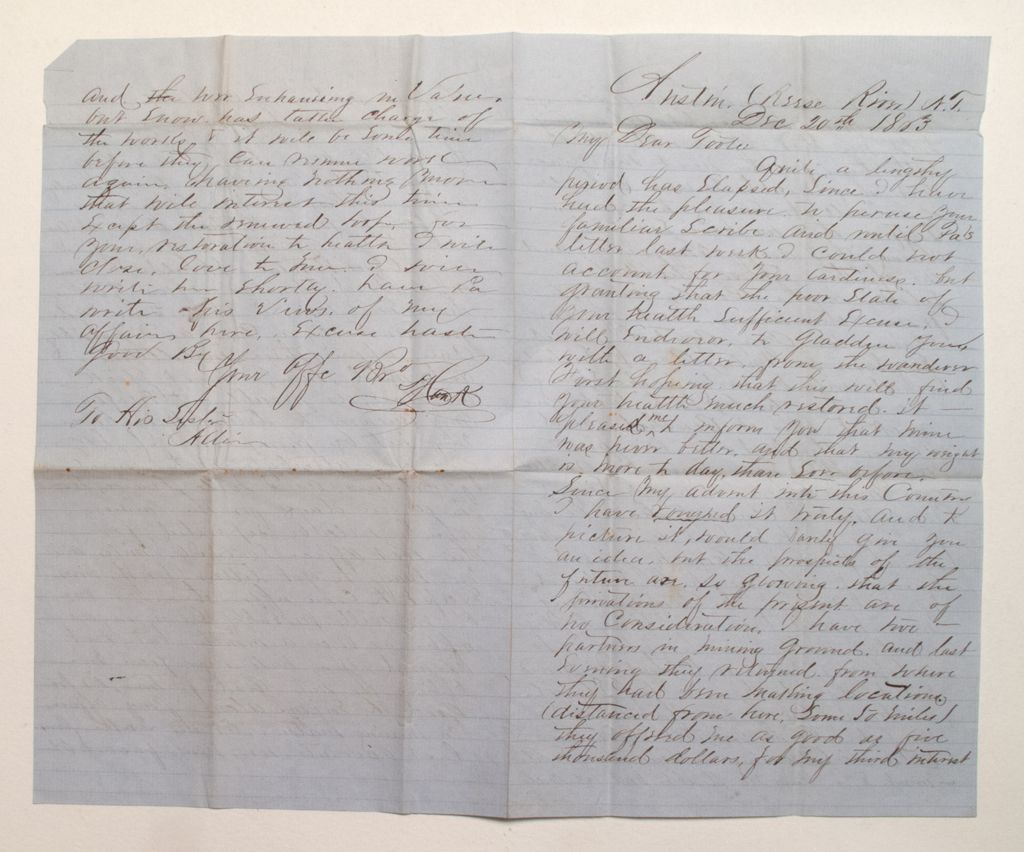 Austin, (Reese River) N.T.
Dec 20th 1863
My Dear Tootee
Quite a lengthy
period has Elapsed, Since I have
had the pleasure to peruse your
familiar Scribe. and until Pa's
letter last week I could not
account for your tardiness. but
granting that the poor State of
your health Sufficient Excuse, I
will Endeavor, to Gladden you
with a letter, from the wanderer
First hoping that this will find
your health much restored. it
pleases me to inform you that mine
was never better. and that my weight
is more to day, than Ever before,
Since my advent into this Country
I have roughed it truly, and to
picture it, would only give you
an idea, but the prospects of the
future are so glowing. that the
privations of the present are of
no Consideration, I have two
partners in mining Ground. and last
Evening they returned from where
they had been making locations
(distanced from here, Some 50 miles)
they offered me as good as five
thousand dollars, for my third interest
and the are Enhancing in Value,
but Snow has taken charge of
the works, & it will be Some time
before they Can resume work
again. having nothing more
that will interest this time
Except the renewed hope for
your restoration to health I will
Close, love to I will
write her Shortly. have Pa
write his Views of my
affairs here, Excuse haste
Good By
Your Affe Bro
Hank
To His Sister